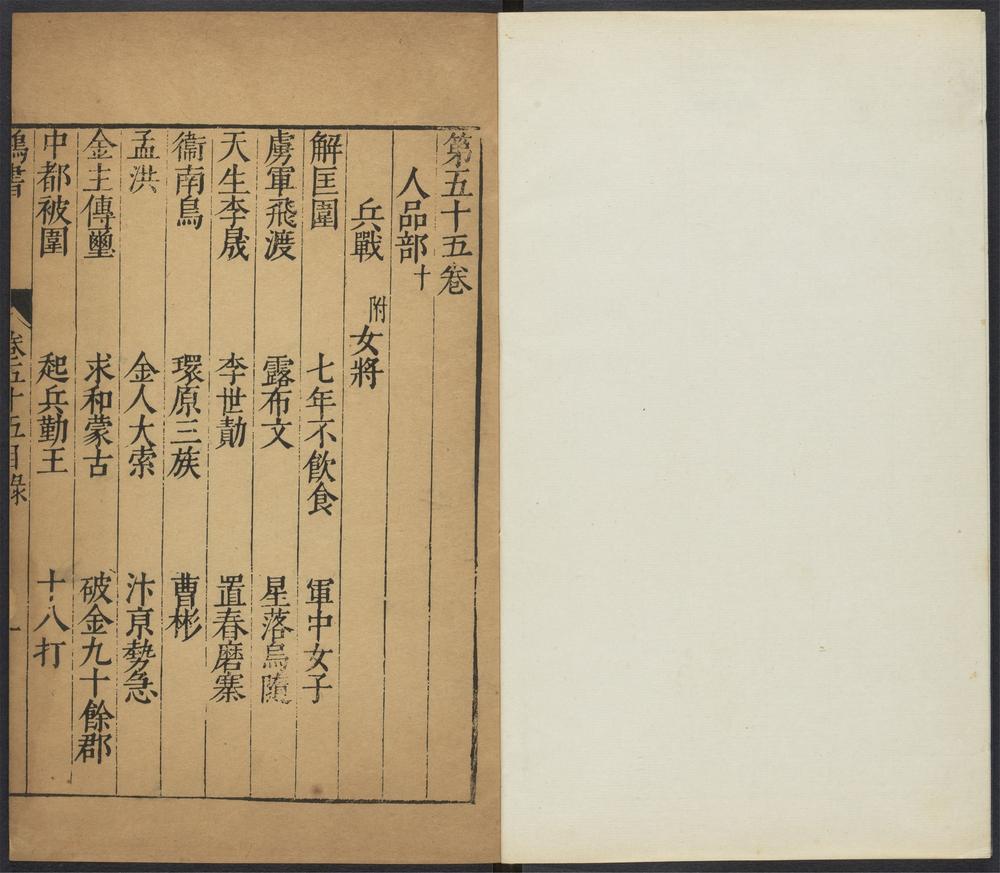 第五十五卷
人品部十
兵戰 附女將
解匡圍 七年不飲食 軍中女子
虜軍飛渡 露布文 星落烏隕
天生李晟 李世勣 置舂磨寨
衞南烏 環原三族 曹彬
孟洪 金人大索 汴京勢急
金主傳璽 求和蒙古 破金九十餘郡
中都被圍 起兵勤王 十八打
鴻書 卷五十五目錄 一